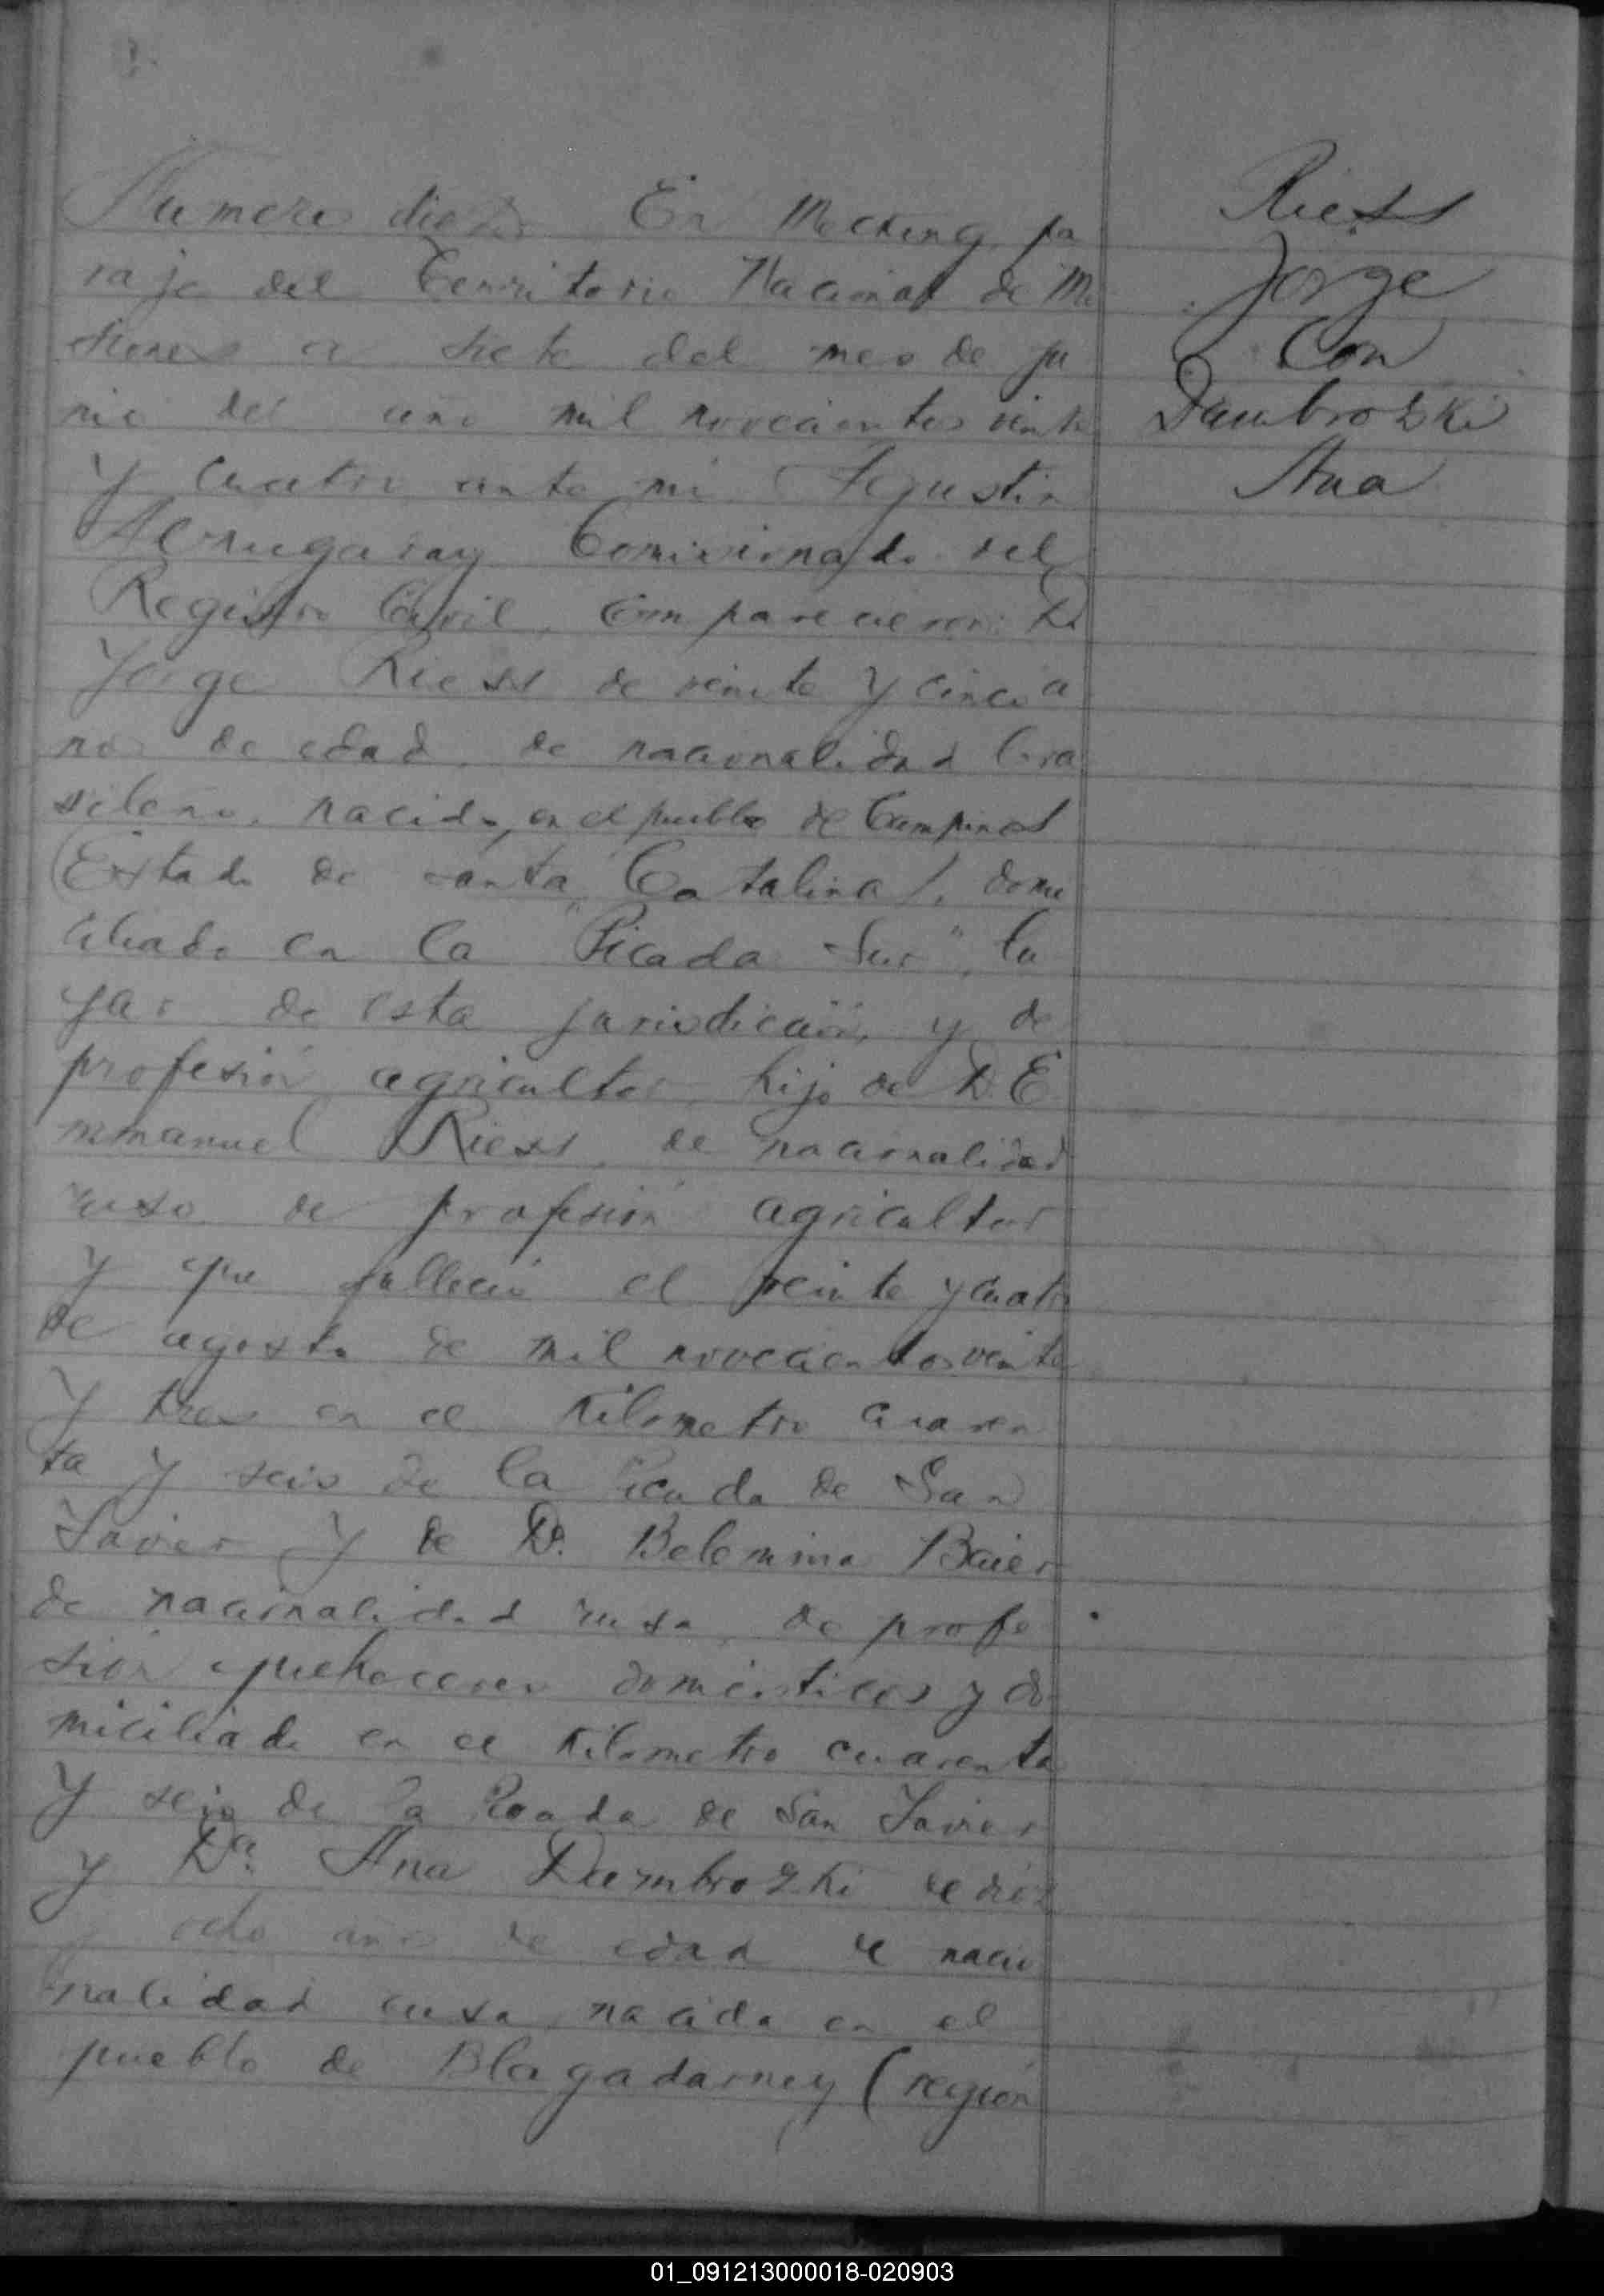 Numero diez. En Mecking, pa
raje del Territorio Nacional de Mi
siones a siete del mes de ju
nio del año mil novecientos veinte
y cuatro ante mi Agustin
Comisionado del
Registro Civil, comparecieron: D.
Jorge Riess de veinte y cinco a
ños de edad, de nacionalidad bra
sileño, nacido, en el pueblo de Campinas
(Estado de Santa Catalina), domi
ciliado en la "Picada Sur", lu
gar de esta jurisdicción, y de
profesión agricultor, hijo de D. E
mmanuel Riess, de nacionalidad
ruso de profesión agricultor
y que falleció el veinte y cuatro
de agosto de mil novecientos veinte
y tres en el Kilometro cuaren
ta y seis de la Picada de San
Javier y de Da. Belemina Baier
de nacionalidad rusa, de profe
sión quehaceres domésticos y do
miciliada en el Kilometro cuarenta
y seis de la Picada de San Javier
y Da. Ana Dambrozki de diez
y ocho años de edad de nacio
nalidad rusa, nacida en el
pueblo de Blagadarney (región
Riess
Jorge
Con
Dambrozki
Ana
01_091213000018-020903